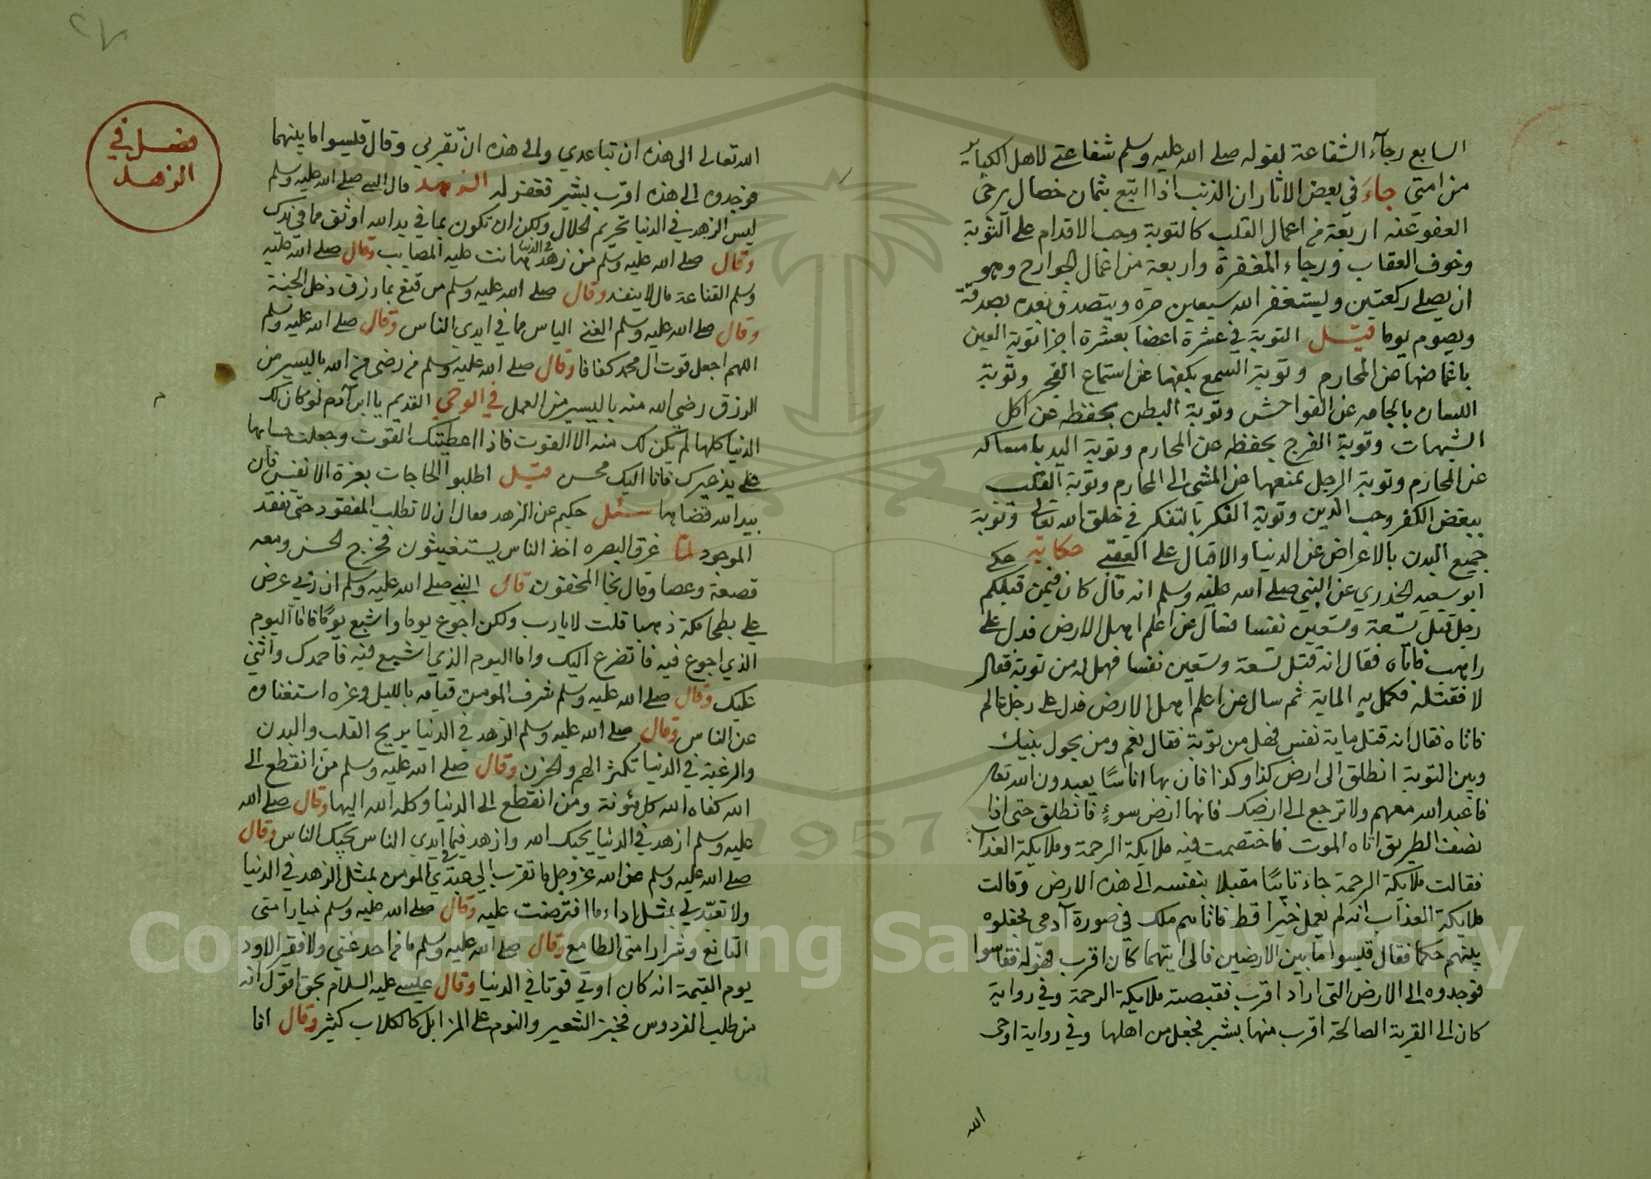 السابع رجآء الشفاعة لقوله صلى الله عليه وسلم شفاعتى لاهل الكبائر
من امتى جاء فى بعض الاثار ان الذنب اذا اتبع بثمان خصال يرجى
العفو عنه اربعة من اعمال القلب كالتوبة وحب الاقدام على التوبة
وخوف العقاب ورجاء المغفرة واربعة من اعمال الجوارح وهو
ان يصلى ركعتين ويستغفر الله سبعين مرة ويتصدق بعده بصدقة
ويصوم يوما قيل التوبة فى عشرة اعضا بعشرة اجزا توبة العين
باغماضها عن المحارم وتوبة السمع بكفها عن استماع الفجر وتوبة
اللسان بالجامه عن الفواحش وتوبة البطن بحفظه عن اكل
الشبهات وتوبة الفرج بحفظه عن المحارم وتوبة اليد بامساكه
عن المحارم وتوبة الرجل بمنعها عن المشى الى المحارم وتوبة القلب
ببغض الكفر وحب الدين وتوبة الفكر بالتفكر فى خلق الله تعالى وتوبة
جميع البدن بالاعراض عن الدنيا والاقبال على العقبى حكاية حكى
ابو سعيد الخدري عن النبى صلى الله عليه وسلم انه قال كان فيمن قبلكم
رجل قتل تسعة وتسعين نفسا فسأل عن اعلم اهل الارض فدل على
راهب فاتاه فقال انه قتل تسعة وتسعين نفسا فهل له من توبة فقال
لا فقتله فكمل به الماية ثم سال عن اعلم اهل الارض فدل على رجل عالم
فاتاه فقال انه قتل ماية نفس فهل من توبة فقال نعم ومن يحول بينك
وبين التوبة انطلق الى ارض كذا وكذا فان بها اناسًا يعبدون الله تعالى
فاعبد الله معهم ولا ترجع الى ارضك فانها ارض سوءٍ فانطلق حتى اذا
نصف الطريق اتاه الموت فاختصمت فيه ملايكة الرحمة وملايكة العذاب
فقالت ملايكة الرحمة جاء تائبًا مقبلا بنفسه الى هذه الارض وقالت
ملايكة العذاب انه لم يعمل خيرا قط فاتاهم ملك فى صورة آدمى فجعلوه
بينهم حكما فقال قيسوا ما بين الارضين فالى ايتهما كان اقرب فهو له فقاسوا
فوجدوه الى الارض التى اراد اقرب فقبضته ملايكة الرحمة وفى رواية
كان الى القرية الصالحة اقرب منها بشبر فجعل من اهلها وفى رواية اوحى
الله
٢٧
فصل في
الزهد
الله تعالى الى هذه ان تباعدي والى هذه ان تقربي وقال قيسوا ما بينهما
فوجدوه الى هذه اقرب بشبر فغفر له الزهد قال النبى صلى الله عليه وسلم
ليس الزهد فى الدنيا تحريم الحلال ولكن ان تكون بما فى يد الله اوثق مما فى يدك
وقال صلى الله عليه وسلم من زهد فى الدنيا هانت عليه المصايب وقال صلى الله عليه
وسلم القناعة مال لا ينفد وقال صلى الله عليه وسلم من قنع بما رزق دخل الجنة
وقال صلى الله عليه وسلم الغنى الياس مما فى ايدى الناس وقال صلى الله عليه وسلم
اللهم اجعل قوت ال محمد كفافا وقال صلى الله عليه وسلم من رضى من الله باليسير من
الرزق رضى الله منه باليسير من العمل فى الوحى القديم يا ابن آدم لو كان لك
الدنيا كلها لم يكن لك منه الا القوت فاذا اعطيتك القوت وجعلت حسابها
على غيرك فانا اليك محسن قيل اطلبوا الحاجات بعزة الانفس فان
بيد الله قضاها سئل حكيم عن الزهد فقال ان لا تطلب المفقود حتى تفقد
الموجود لما غرق البصره اخذ الناس يستغيثون فخرج الحسن ومعه
قصعة وعصا وقال نجا المخفون قال النبى صلى الله عليه وسلم ان ربى عرض
على بطحا مكة ذهبا قلت لا يا رب ولكن اجوع يوما واشبع يومًا فاما اليوم
الذى اجوع فيه فاتضرع اليك واما اليوم الذى اشبع فيه فاحمدك واثنى
عليك وقال صلى الله عليه وسلم شرف المومن قيامه بالليل وعزه استغناه
عن الناس وقال صلى الله عليه وسلم الزهد فى الدنيا يريح القلب والبدن
والرغبة فى الدنيا تكثر الهم والحزن وقال صلى الله عليه وسلم من انقطع الى
الله كفاه الله كل مئونة ومن انقطع الى الدنيا وكله الله اليها وقال صلى الله
عليه وسلم ازهد فى الدنيا يحبك الله وازهد فيما ايدى الناس يحبك الناس وقال
صلى الله عليه وسلم عن الله عز وجل ما تقرب الى عبدي المومن بمثل الزهد فى الدنيا
ولا تعبد لى بمثل اداء ما افترضت عليه وقال صلى الله عليه وسلم خيار امتى
القانع وشرار امتى الطامع وقال صلى الله عليه وسلم ما من احد غنى ولا فقير الا ود
يوم القيمة انه كان اوتى قوتا فى الدنيا وقال عيسى عليه السلام بحق اقول انه
من طلب الفردوس فخبز الشعير والنوم على المزابل كالكلاب كثير وقال انا
Copyright © King Saud University
1957